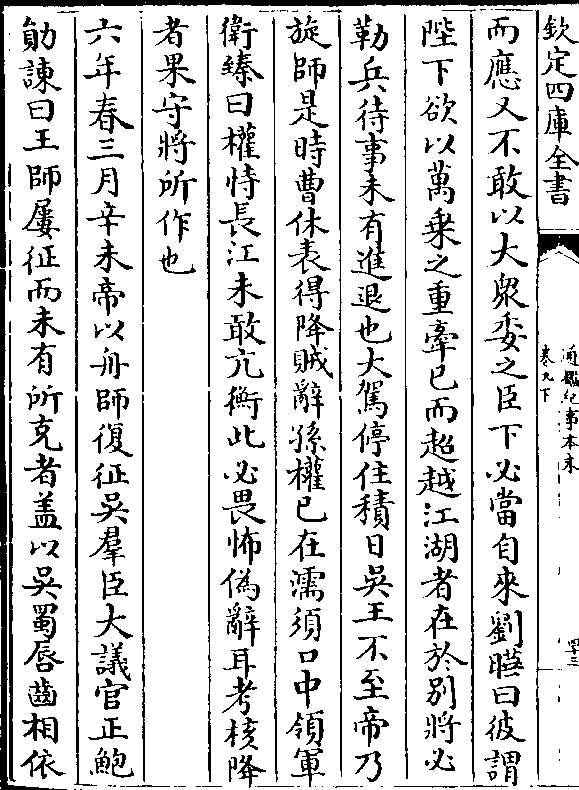 欽定四庫全書
通鑑紀事本末
卷九下
四十三
而應又不敢以大眾委之臣下必當自來劉曄曰彼謂
陛下欲以萬乗之重牽已而超越江湖者在於别將必
勒兵待事未有進退也大駕停住積日吳王不至帝乃
旋師是時曹休表得降賊辭孫權已在濡須口中領軍
衛臻曰權恃長江未敢亢衡此必畏怖偽辭耳考核降
者果守將所作也
六年春三月辛未帝以舟師復征吳羣臣大議宫正鮑
勛諫曰王師屢征而未有所克者盖以吳蜀唇齒相依